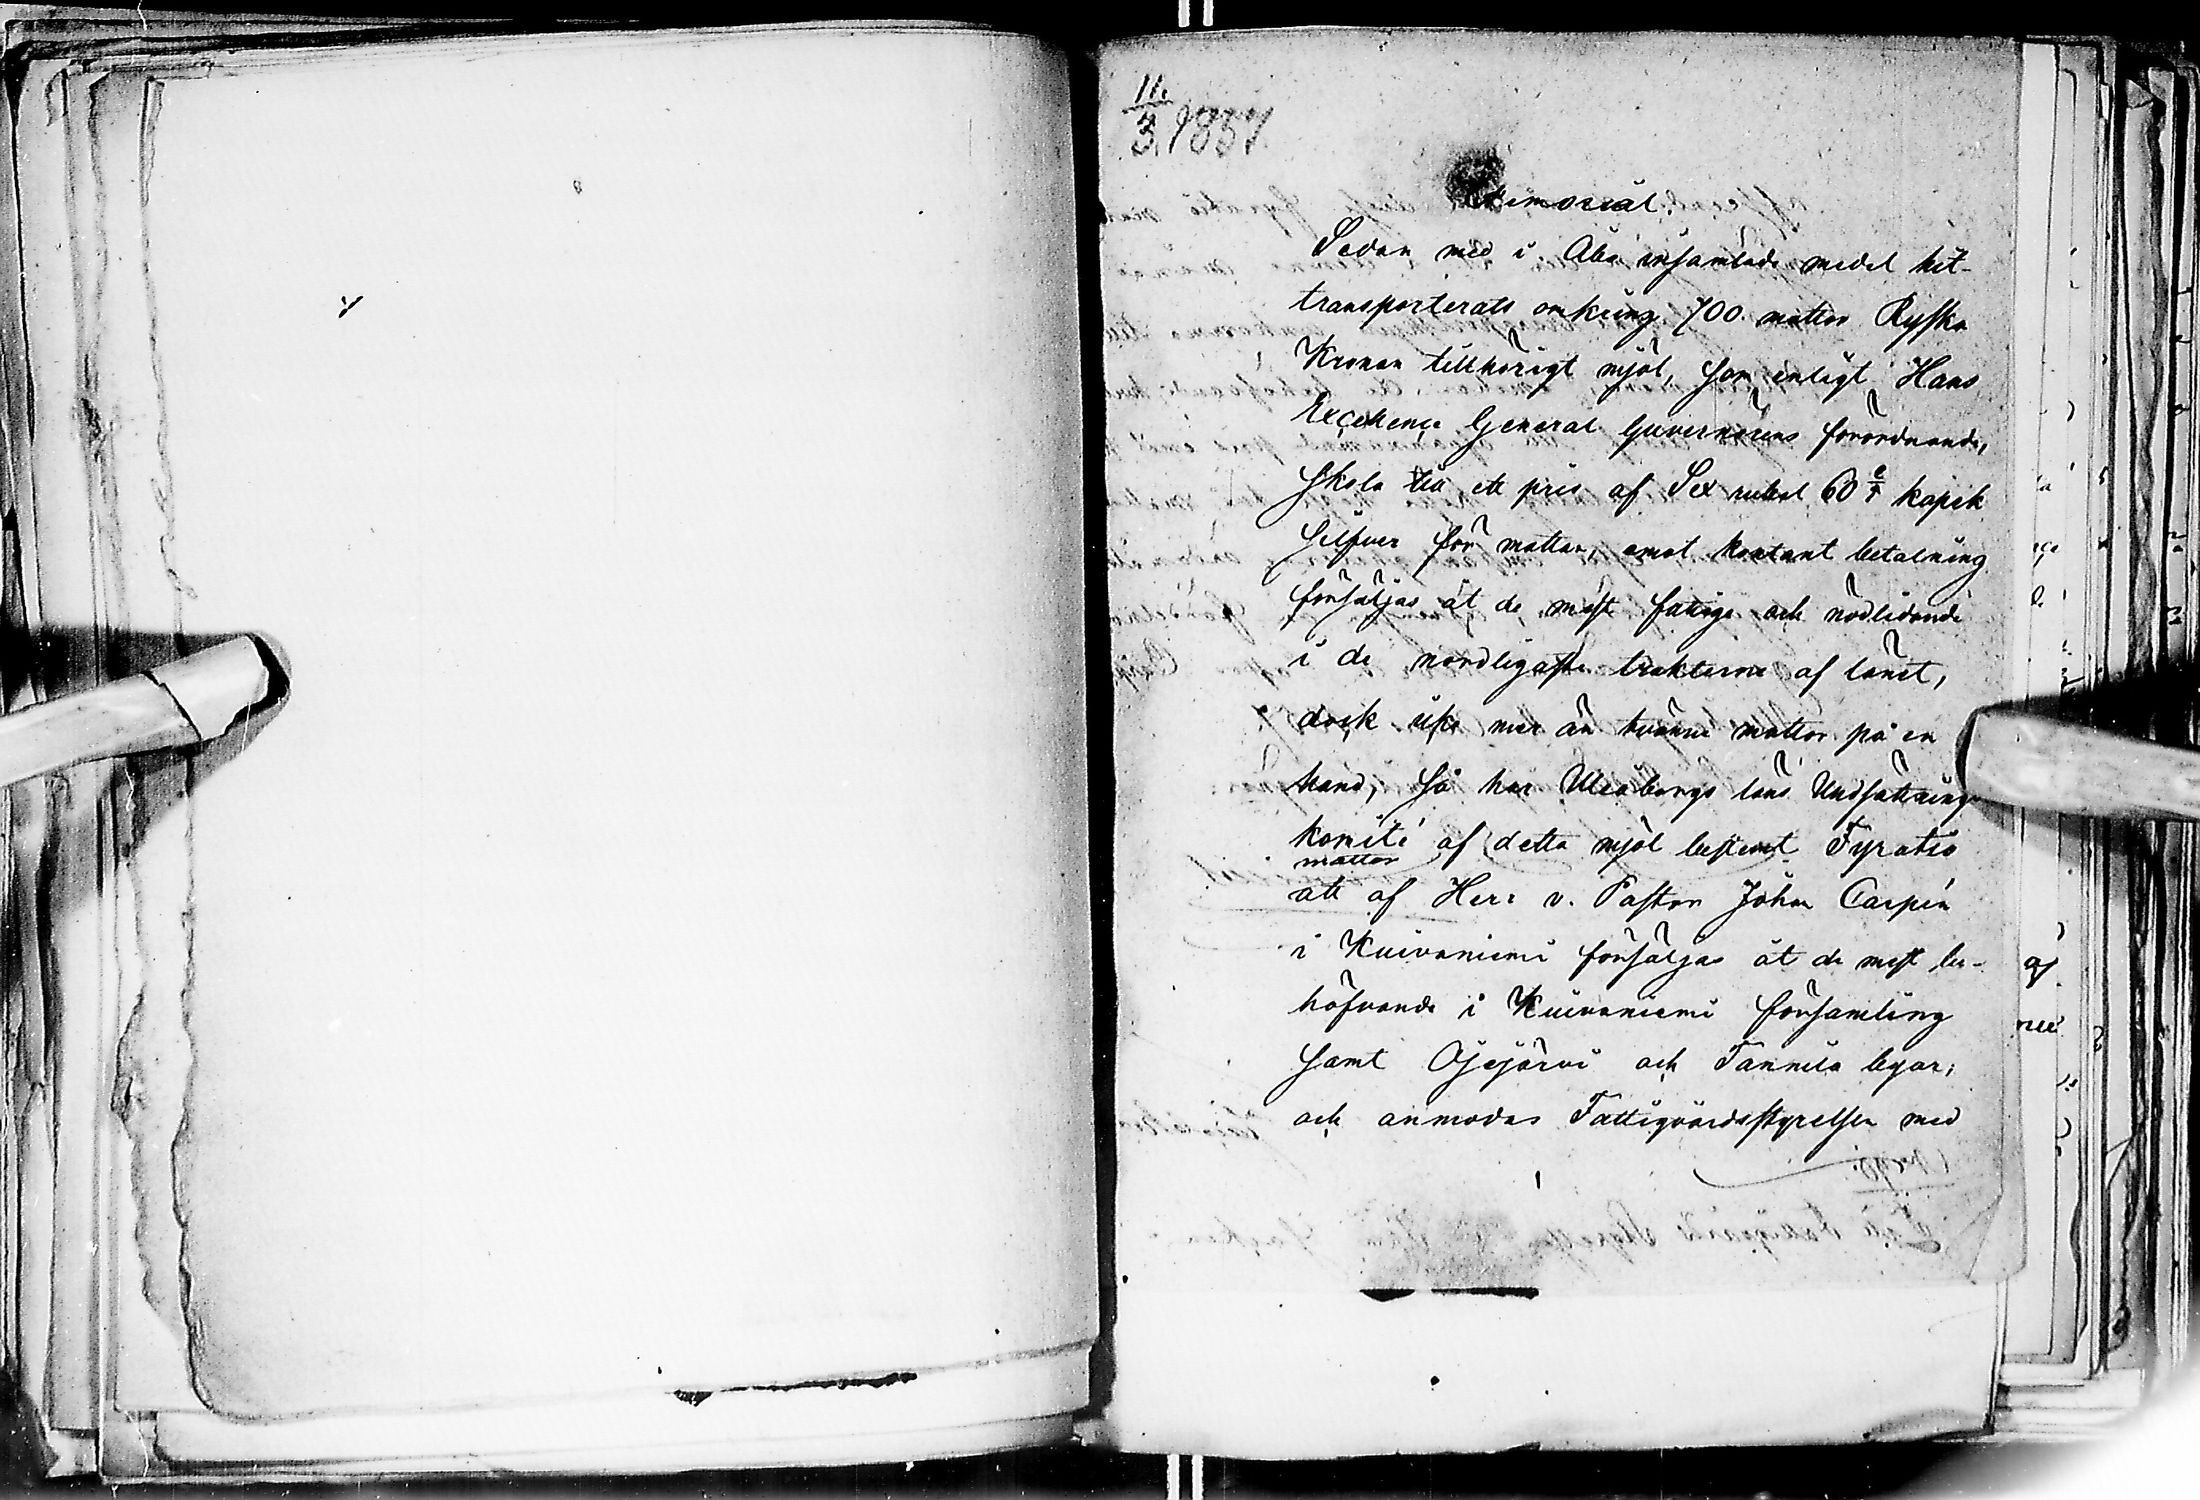 11.
3. 1857.
Memorial.
Sedan med i Åbo insamlade medel hit-
transporterats omkring 700 mattor Ryska
Kronan tillhörigt mjöl, som enligt Hans
Excellence General Guvernörens förordnande,
skola till ett pris af Sex rubel 60 kopek
silfver för mattan, emot kontant betalning
försäljas åt de mest fattige och nödlidande
i de nordligaste trakterne af länet,
dock icke mer än tvänne mattor på en
hand, så har Uleåborgs läns Undsättnings
komité af detta mjöl bestemt Fyratio
mattor
att af Herr v. Pastor Johan Carpén
i Kuivaniemi försäljas åt de mest be-
höfvande i Kuivaniemi församling
samt Ojejärvi och Tannila byar;
och anmodas Fattigvårdsstyrelsen med